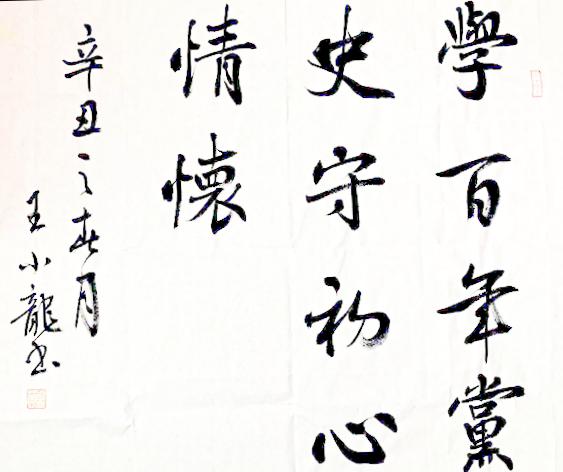 學百年黨
史守初心
情懷
辛丑之春月
王小龍书